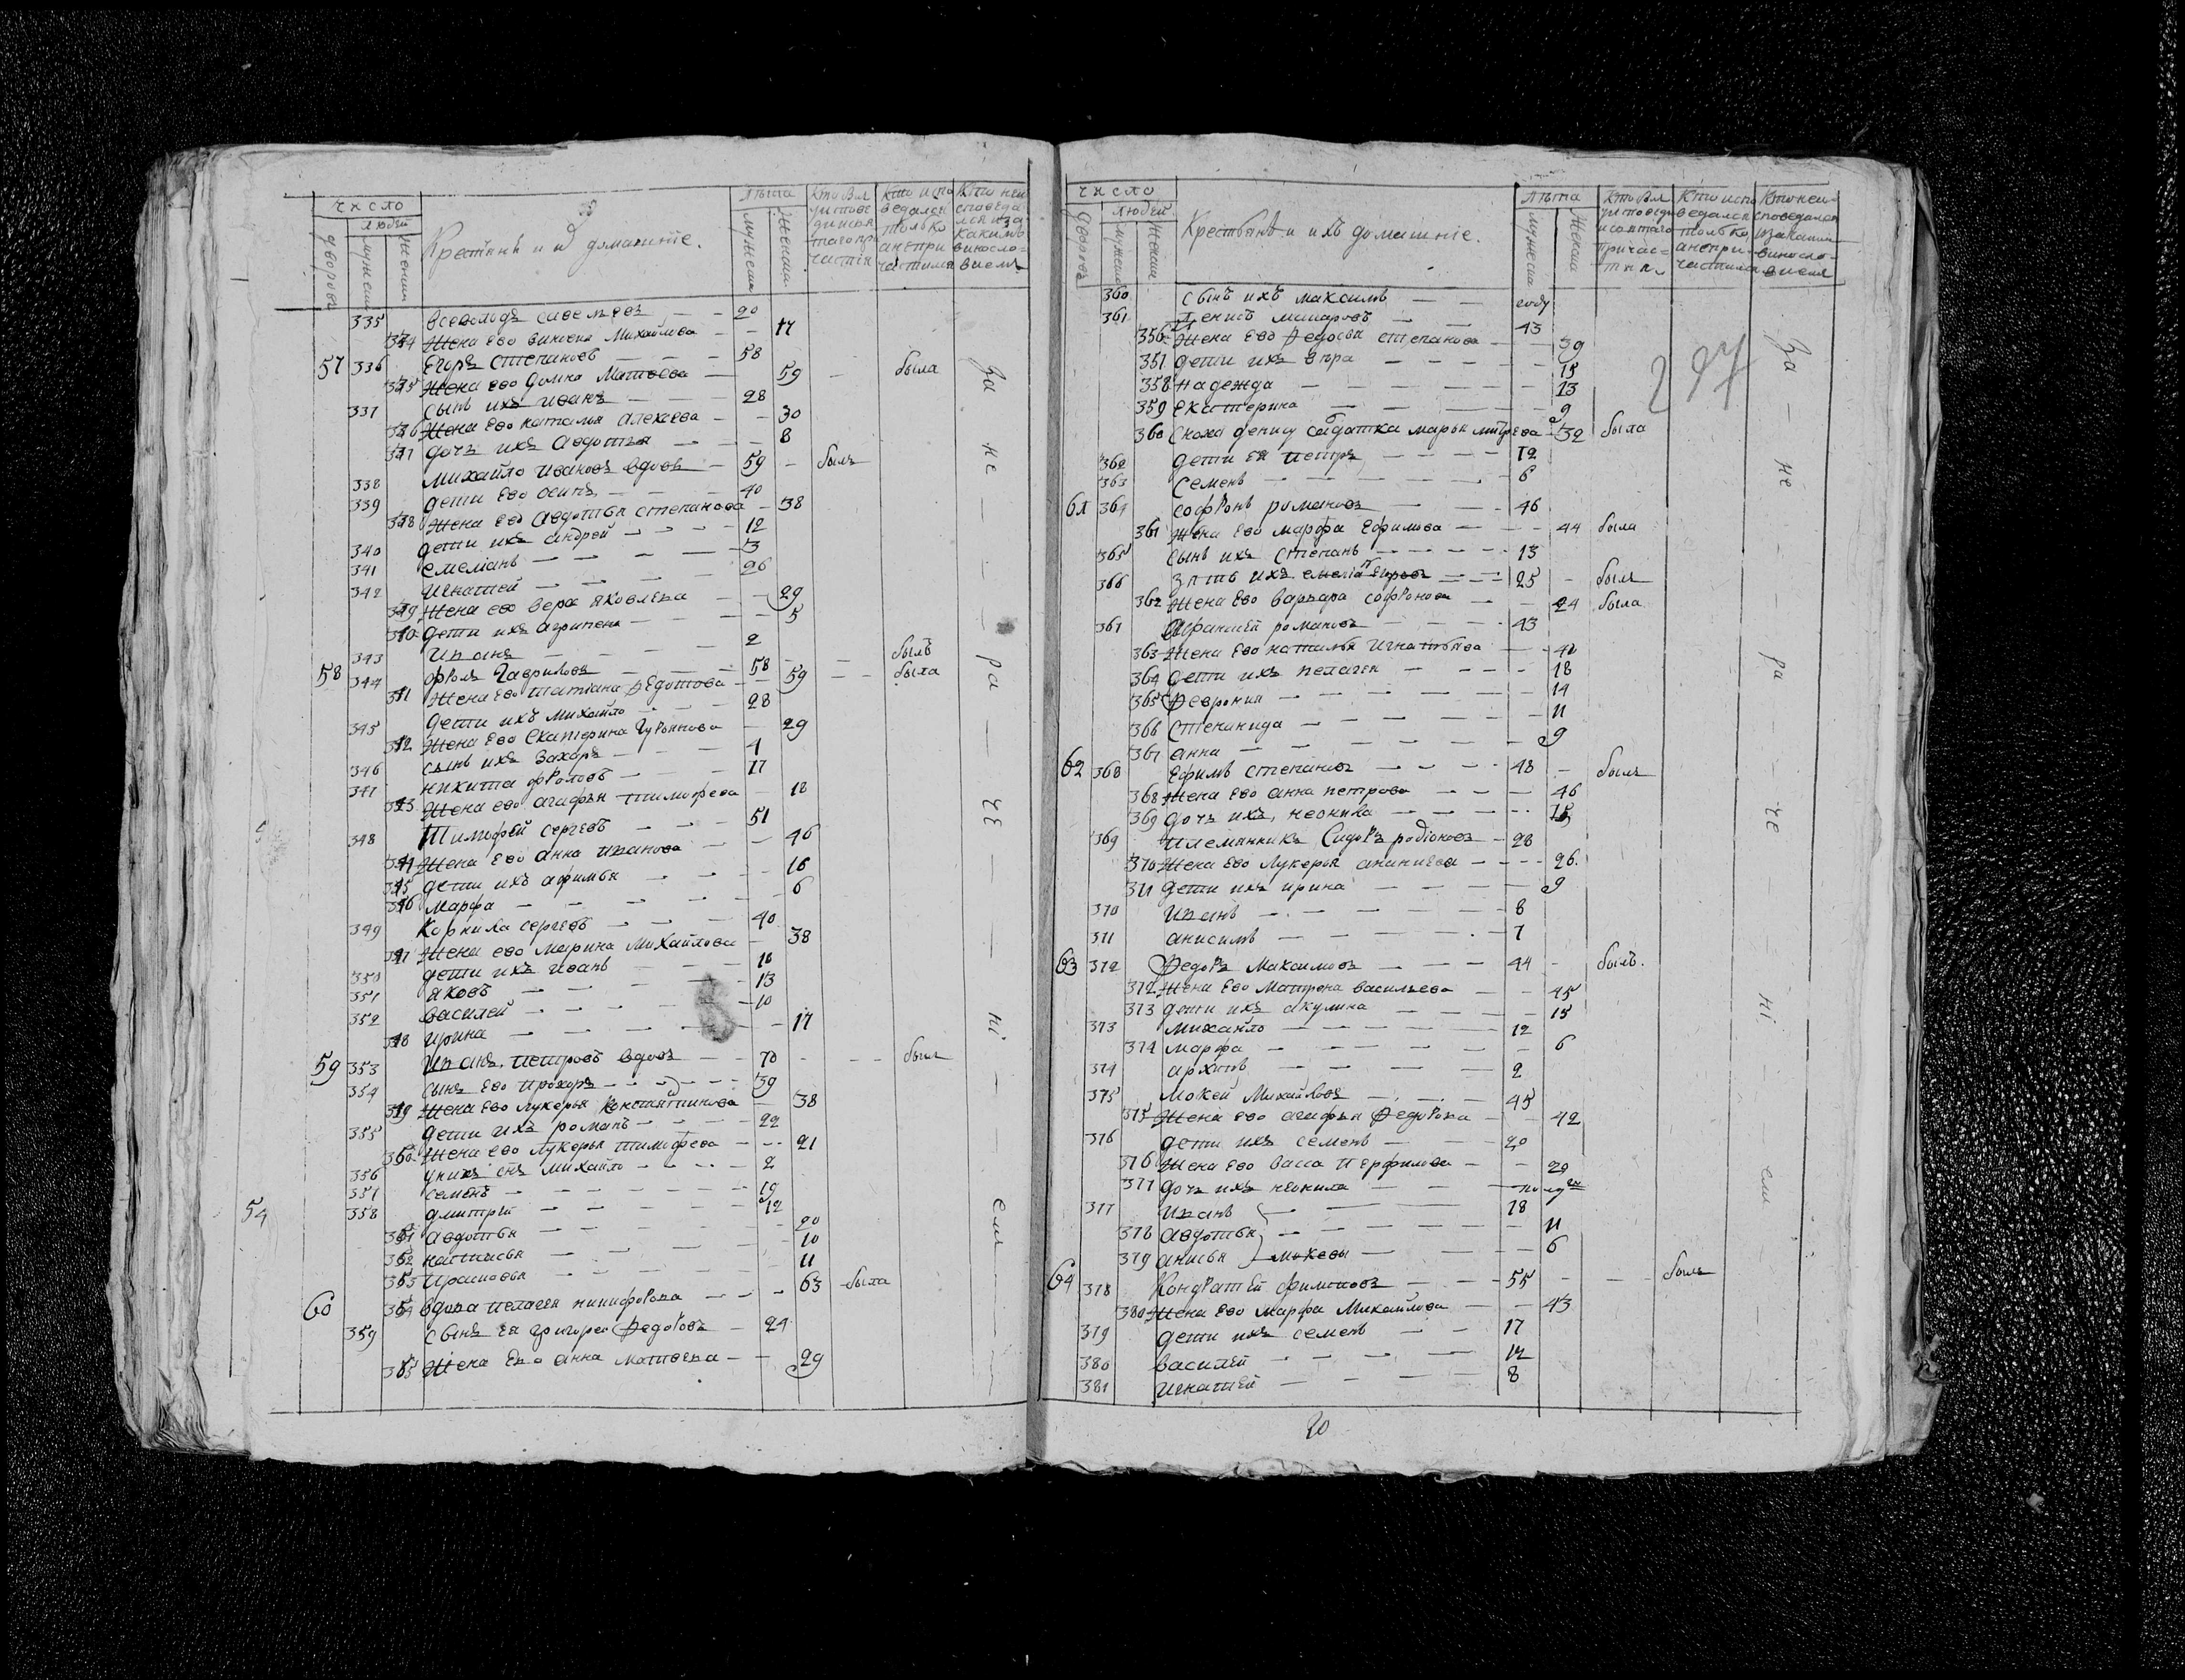 число
людей
дворовъ
мужеска
женска
Крестьянъ и их домашние.
лѣта
мужеска
женска
Кто был
у исповеди и святаго причастия
Кто исповедался только а не причастился
Кто не исповедался и за каким винословием
335 Всеволодъ савельевъ — 20
Жена ево Михайлова — 17
57 336 Егоръ степановъ — 58
Жена ево домна Матвеева — 59 была
337 сынъ ихъ иванъ — 28
Жена ево наталья алексеева — 30
дочь ихъ авдотья — 8
338 михайло ивановъ вдовъ — 59 — былъ
339 дети ево осипъ — 40
Жена ево авдотья степанова — 38
340 дети ихъ андрей — 12
341 емелианъ — 3
342 игнатей — 26
Жена ево вера яковлева — 29
дети ихъ агрипена — 5
343 иванъ — 2
58 344 фролъ гавриловъ — 58 — былъ
Жена ево татиана федотова — 59 — была
345 дети ихъ михайло — 28
Жена ево екатерина — 29
346 сынъ ихъ захаръ — 4
347 никита фроловъ — 17
Жена ево агафья тимофеева — 18
348 Тимофей сергеевъ — 51
Жена ево анна иванова — 46
дети ихъ афимья — 16
марфа — 6
349 Корнила сергеевъ — 40
Жена ево марина михайлова — 38
350 дети ихъ иванъ — 16
351 яковъ — 13
352 василей — 10
ирина — 17
59 353 иванъ петровъ вдовъ — 70 — был
354 сынъ ево прохоръ — 39
Жена ево лукерья константинова — 38
355 дети ихъ романъ — 22
350 Жена ево лукерья тимофеева — 21
356 у них снъ михайло — 2
357 семенъ — 19
358 дмитрей — 12
авдотья — 20
настасья — 10
— 11
60 вдова пелагея никифорова — 63 была
359 сынъ ея григорей федоровъ — 24
Жена ево анна матвеева — 29
54
За — не — ра — че — ні — ем
число
людей
дворовъ
мужеска
женска
Крестьянъ и ихъ домашніе.
лѣта
мужеска
женска
Кто был у исповеди и святаго причастия
Кто исповедался только, а не причастился
Кто не исповедался и за каким винословием
360 сынъ ихъ максимъ — году
361 денисъ — 43
356 Жена ево федосья степанова — 39
357 дети ихъ вера — 15
358 надежда — 13
359 екатерина — 9
360 сноха денису салдатка марья митрева — 32 была
362 дети ея петръ — 12
363 семенъ — 6
61 364 софронъ романовъ — 46
361 жена ево марфа ефимова — 44 была
365 сынъ ихъ степанъ — 13
366 зять ихъ — 25 — былъ
362 жена ево варвара софронова — 24 была
367 романовъ — 43
363 Жена ево наталья игнатьева — 40
364 дети ихъ пелагея — 18
365 феврония — 14
366 степанида — 11
367 анна — 9
62 368 ефимъ степановъ — 48 — былъ
368 Жена ево анна петрова — 46
369 дочь ихъ, неонила — 15
369 племянникъ Сидоръ родіоновъ — 28
370 Жена ево лукерья ананиева — 26
371 дети ихъ ирина — 9
370 иванъ — 8
371 анисимъ — 7
63 372 федоръ максимовъ — 44 — былъ.
372 Жена ево матрена васильева — 45
373 дети ихъ акулина — 15
373 михайло — 12
374 марфа — 6
374 архипъ — 2
375 мокей михайловъ — 45
375 Жена ево агафья федорова — 42
376 дети ихъ семенъ — 20
376 Жена ево васса перфилова — 20
377 дочь ихъ неонила —
377 иванъ — 18
378 авдотья — 11
379 анисья мокеевы — 6
64 378 Кондратей филиповъ — 55 — былъ
380 Жена ево марфа михайлова — 43
379 дети ихъ семенъ — 17
380 василей — 12
381 игнатей — 8
За — не — ра — че — ні — ем
20